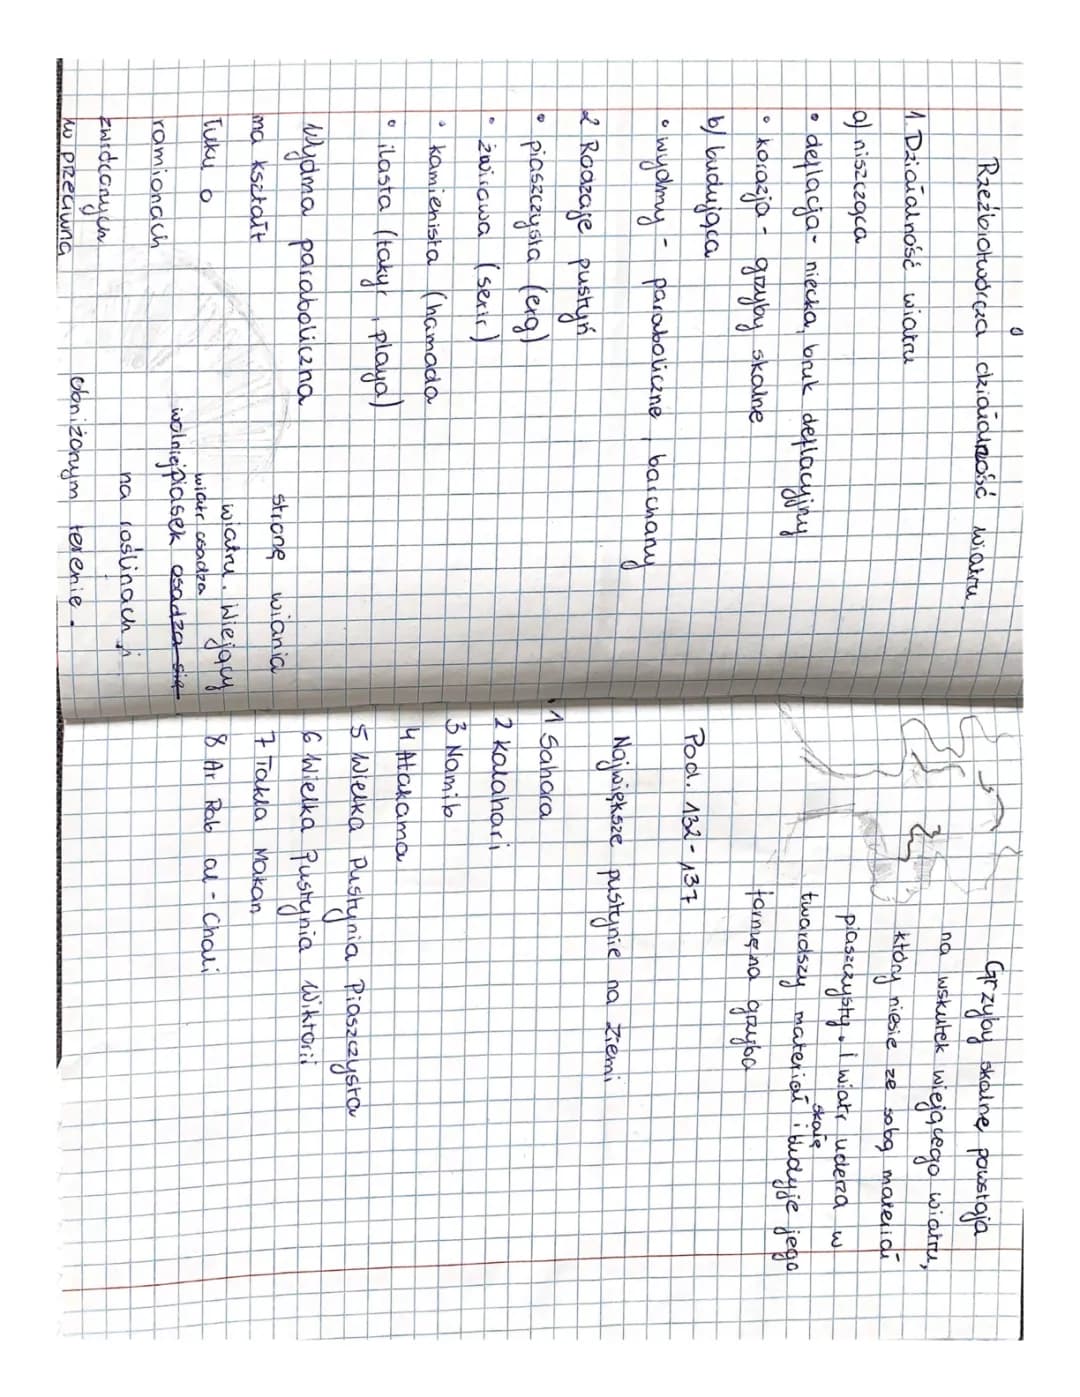 Rzeźbotwórcza działalność wiatru
1. Działalność wiatru
a) niszcząca
• deflacja - niecka, bruk deflacyjny
• korazja - grzyby skalne
b) budująca
• wydmy - paraboliczne, barchany
2 Rodzaje pustyń
• piaszczysta (erg)
• żwirowa (serir)
• kamienista (hamada
• ilasta (takyr, playa)
Wydma paraboliczna
ma kształt
łuku o
ramionach
zwróconych
w przeciwną
stronę wiania
wiatru. Wiejący
wiatr osadza
wolniej piasek osadza się
na roślinach i
obniżonym terenie.
Grzyby skalnę powstają
na wskutek wiejącego wiatru,
który niesie ze sobą materiał
piaszczysty. I wiatr uderza w
skałę
twardszy materiał i budyje jego
formę na grzyba
Pod. 132-137
Największe pustynie na ziemi
1 Sahara
2 Kalahari
3 Namib
4 Atakama
5 Wielka Pustynia Piaszczysta
6 Wielka Pustynia Wiktorii
7 Takla Makan
8 Ar Rab al-Chali